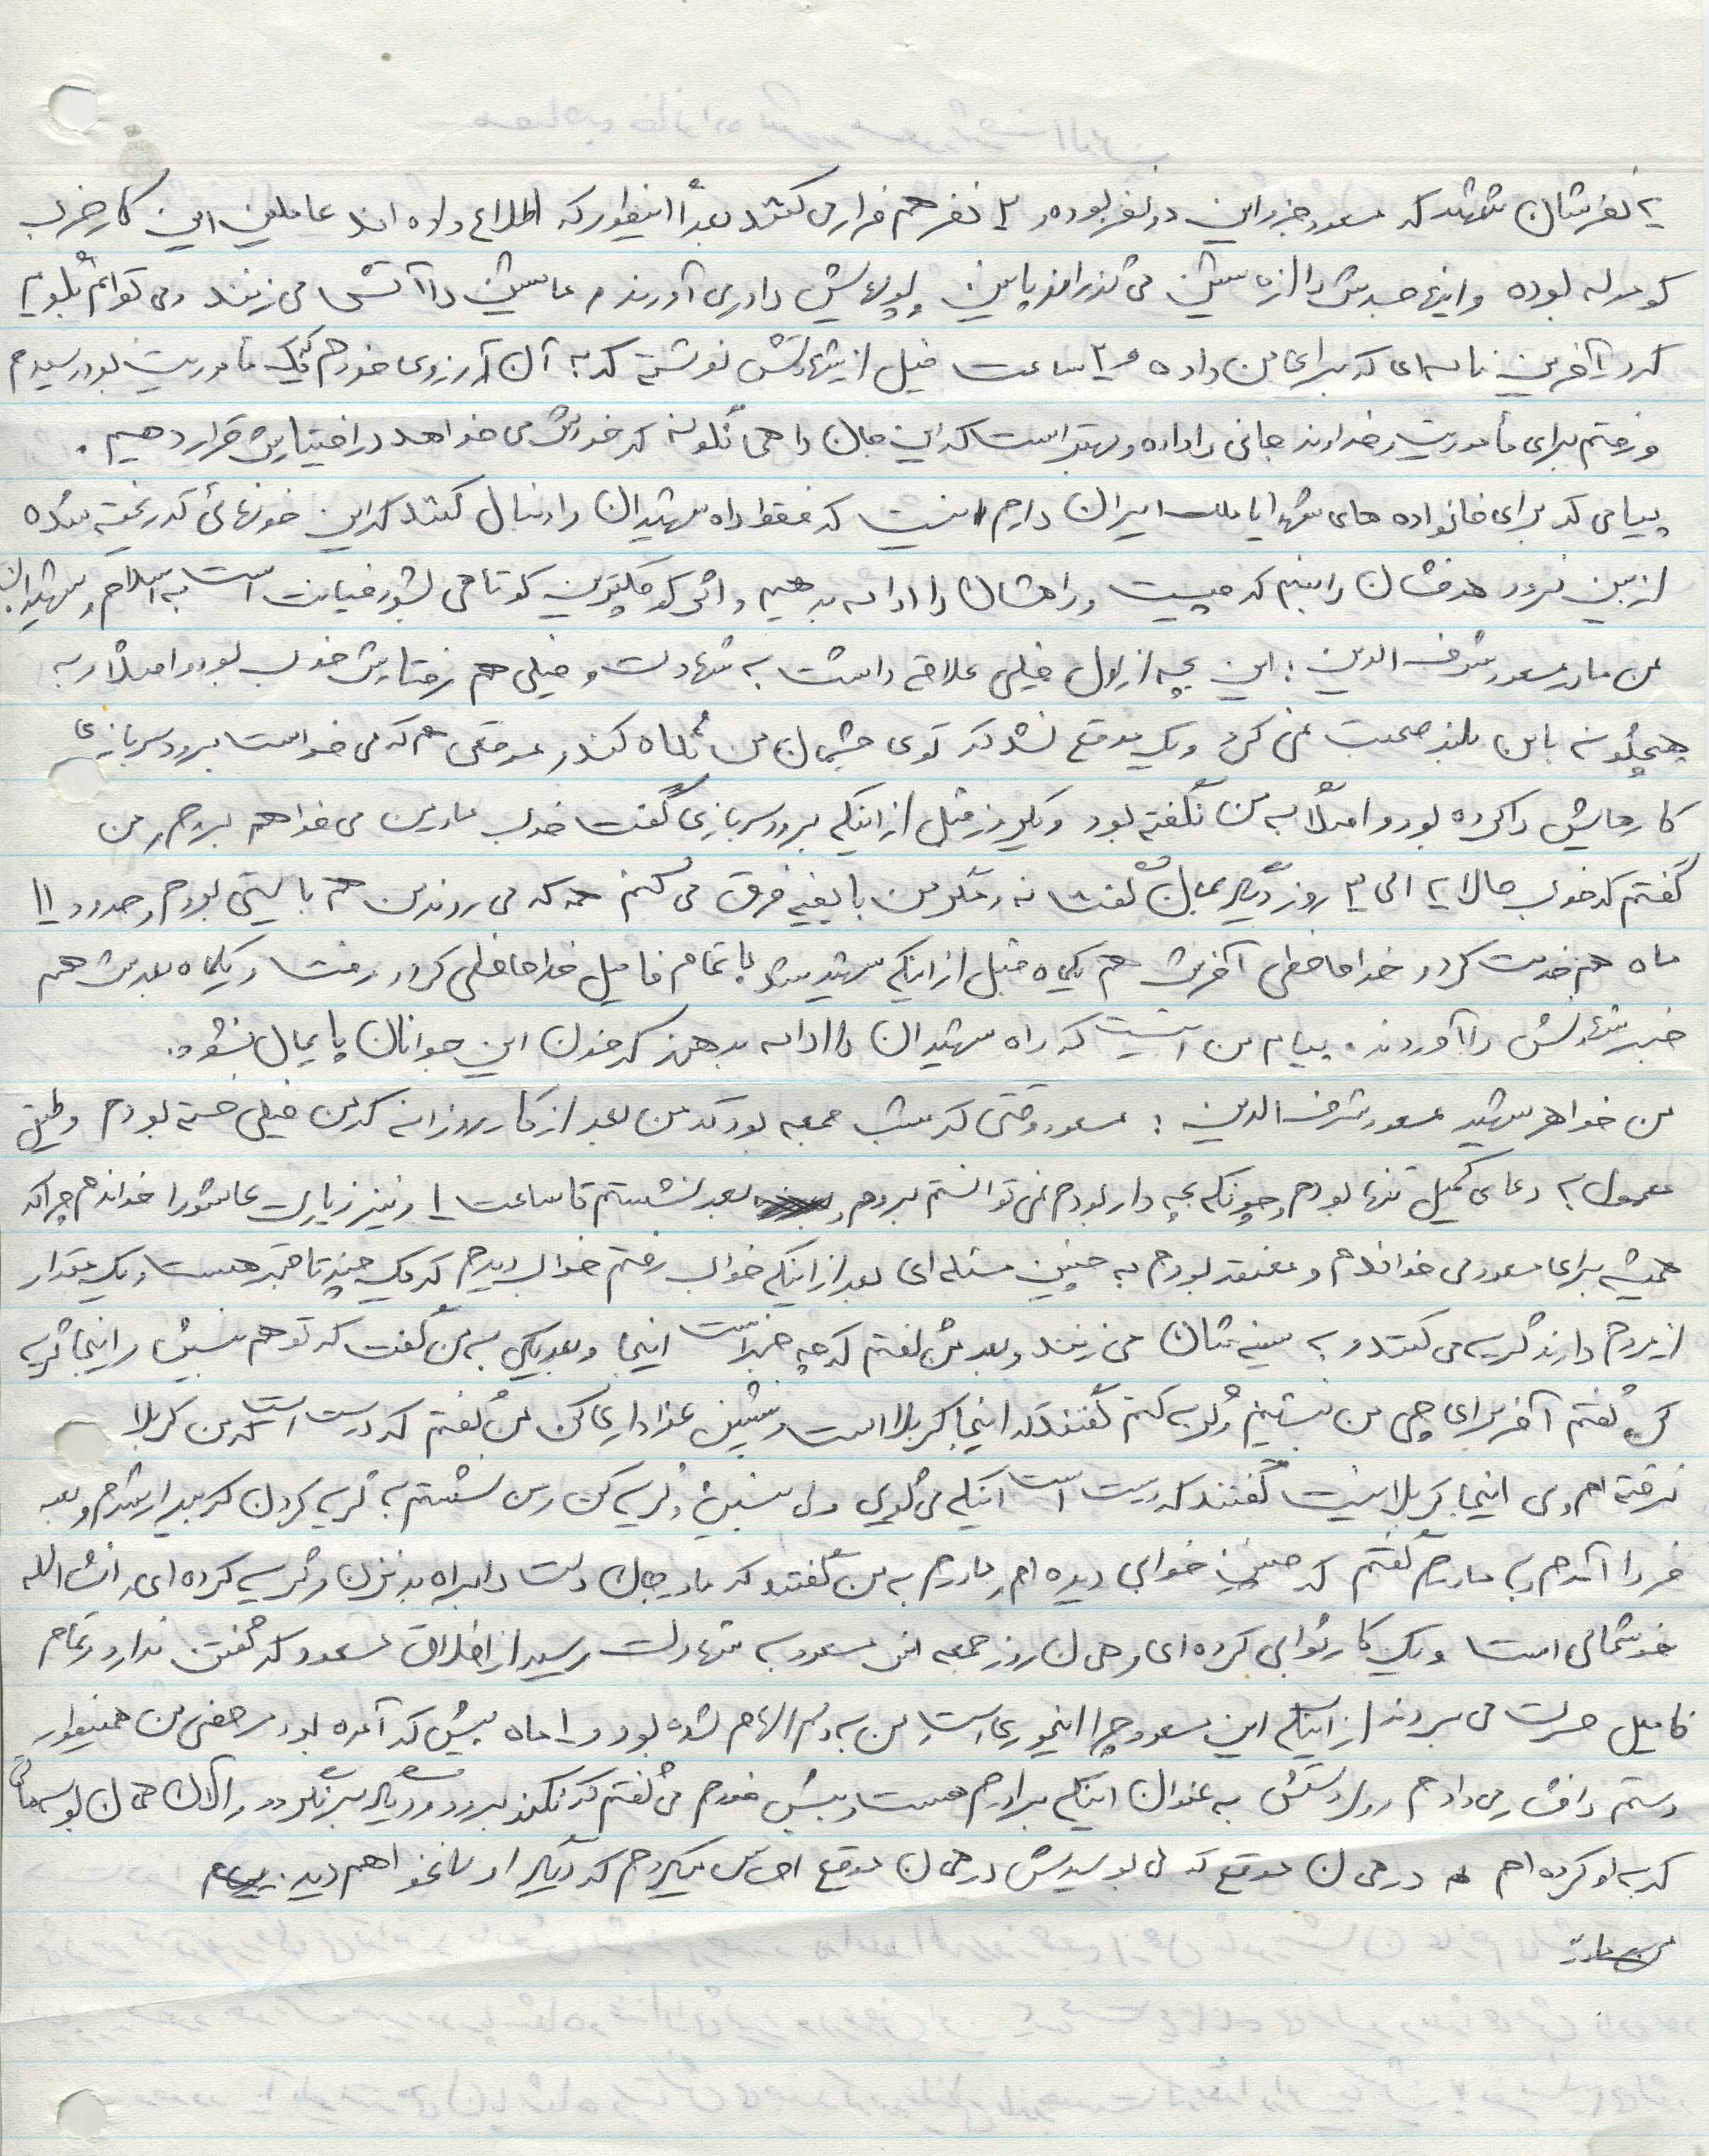 ۲ نفرشان شهید که مسعود جزو این دو نفر بوده و ۲ نفر هم فرار می کنند بعداً اینطور که اطلاع داده اند عاملین این کار حزب
کومله بوده و اینها جسدش را از ماشین می گذرانند پایین و پولهایش را درمی آورند و ماشین را آتش می زنند ومی توانم بگویم
که در آخرین نامه ای که برای من داده ۲۰ ساعت قبل از شهادتش نوشته که به آن آرزوی خودم که یک مأموریت بود رسیدم
و رفتم برای مأموریت و خداوند جانی را داده و بهتر است که این جان را همانگونه که خودش می خواهد در اختیارش قرار دهیم .
پیامی که برای خانواده های شهدا یا ملت ایران دارم اینست که فقط راه شهیدان را دنبال کنند که این خونهائی که ریخته شده
از بین نرود هدفشان را ببینیم که چیست و راهشان را ادامه بدهیم و اگر کوچکترین کوتاهی بشود خیانت است به اسلام و شهیدان
من مادر مسعود شرف الدین : این بچه از اول خیلی علاقه داشت به شهادت و خیلی هم رفتارش خوب بود و اصلاً و به
هیچگونه با من بلند صحبت نمی کرد و یک موقع نشد که توی چشمان من نگاه کند و موقعی هم که می خواست برود سربازی
کارهایش را کرده بود و اصلاً به من نگفته بود و یکروز قبل از اینکه برود سربازی گفت خوب مادر من می خواهم بروم و من
گفتم که خوب حالا ۲ الی ۳ روز دیگر بمان گفت نه و مگر من با بقیه فرق می کنم همه که می روند من هم بایستی بروم و حدود ۱۱
ماه هم خدمت کرد و خداحافظی آخرش هم یکماه قبل از اینکه شهید بشود با تمام فامیل خداحافظی کرد و رفت و یکماه بعدش هم
خبر شهادتش را آوردند . پیام من اینست که راه شهیدان را ادامه بدهند که خون این جوانان پایمال نشود .
من خواهر شهید مسعود شرف الدین : مسعود وقتی که شب جمعه بود که من بعد از کار روزانه که من خیلی خسته بودم و طبق
معمول به دعای کمیل تنها بودم و چونکه بچه دار بودم نمی توانستم بروم و بعد نشستم تا ساعت ۱ و نیز زیارت عاشورا خواندم چرا که
همیشه برای مسعود می خواندم و معتقد بودم به چنین مسئله ای بعد از اینکه خواب رفتم خواب دیدم که یک چند تا قبر هست و یک مقدار
از مردم دارند گریه می کنند و به سینه شان می زنند و بعد من گفتم که چه خبر است اینجا و بعد یکی به من گفت که تو هم بنشین و اینجا گریه
کن گفتم آخر برای چی من بنشینم و گریه کنم گفتند که اینجا کربلا است بنشین عزاداری کن من گفتم که درست است که من کربلا
نرفته ام ولی اینجا کربلا نیست گفتند که درست است اینکه می گوئی ولی بنشین و گریه کن و من نشستم به گریه کردن که بیدار شدم و به
فردا آمدم به مادرم گفتم که چنین خوابی دیده ام و مادرم به من گفتند که مادر جان دلت را براه بد نزن و گریه کرده ای انشاالله
خوشحالی است و یک کار ثوابی کرده ای و همان روز جمعه این مسعود به شهادت رسید از اخلاق مسعود که گفتن ندارد و تمام
فامیل حسرت می برند از اینکه این مسعود چرا اینجوری است من به دلم الهام شده بود و ۱ ماه پیش که آمده بود مرخصی من همینطور
دستم را فشار می دادم روی دستش به عنوان اینکه برادرم هست و پیش خودم می گفتم که نکند برود و دیگر برنگردد و الان همان بوسه هائی
که به او کرده ام در همان موقع که می بوسیدمش در همان موقع احساس میکردم که دیگر او را نخواهم دید .